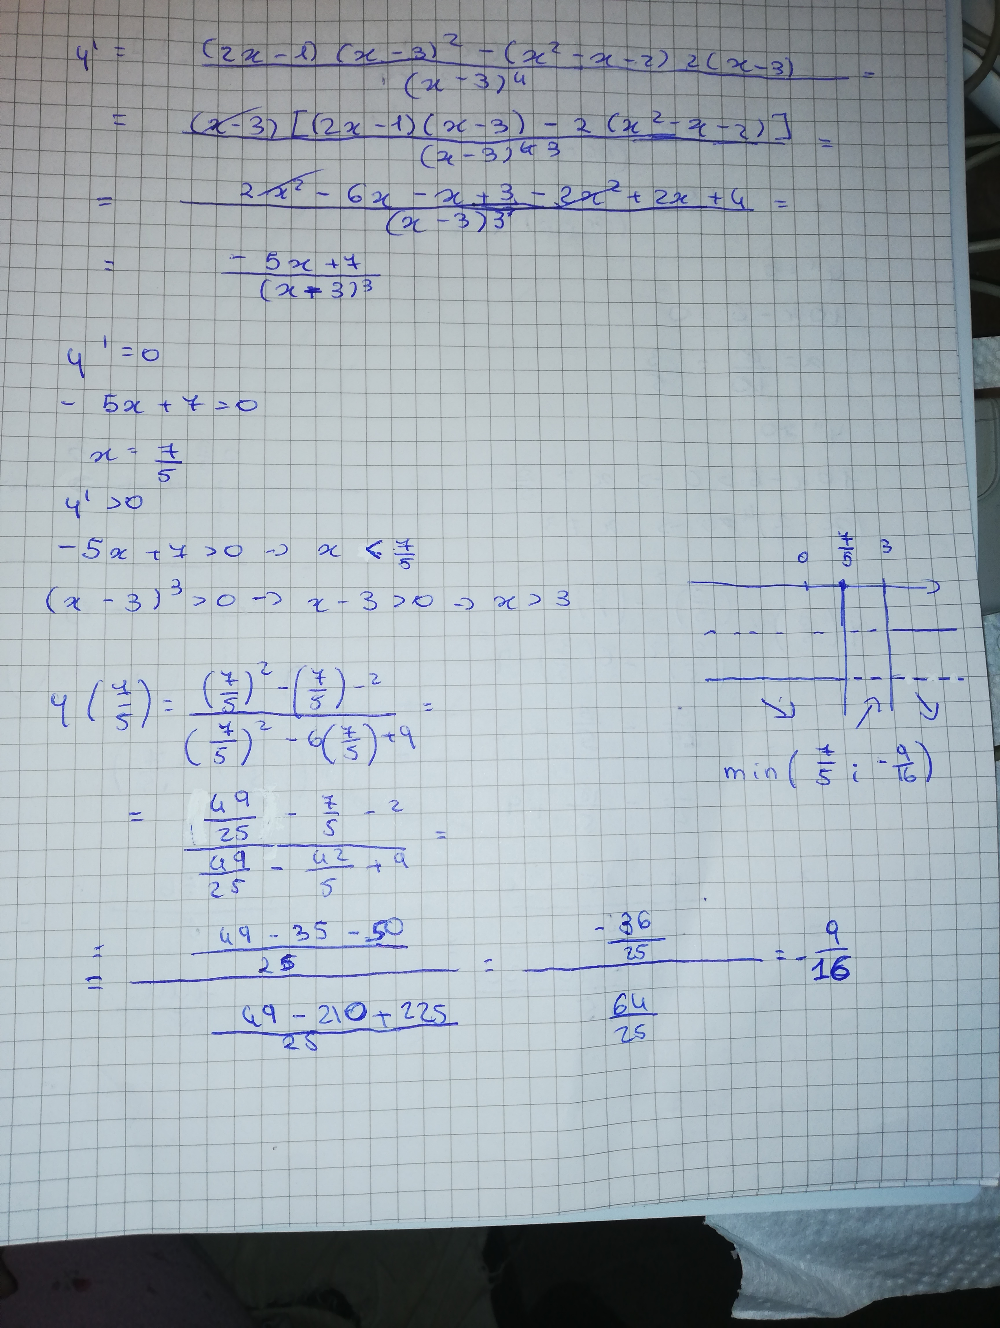 y' = \frac{(2x-1)(x-3)^2 - (x^2-x-2) 2(x-3)}{(x-3)^4} =
= \frac{(x-3)[(2x-1)(x-3) - 2(x^2-x-2)]}{(x-3)^{4 3}} =
= \frac{2x^2 - 6x - x + 3 - 2x^2 + 2x + 4}{(x-3)^3} =
= \frac{-5x+7}{(x-3)^3}
y' = 0
-5x + 7 = 0
x = \frac{7}{5}
y' > 0
-5x + 7 > 0 → x < \frac{7}{5}
(x-3)^3 > 0 → x - 3 > 0 → x > 3
0 \frac{7}{5} 3
y(\frac{7}{5}) = \frac{(\frac{7}{5})^2 - (\frac{7}{5}) - 2}{(\frac{7}{5})^2 - 6(\frac{7}{5}) + 9} =
min(\frac{7}{5}; -\frac{9}{16})
= \frac{\frac{49}{25} - \frac{7}{5} - 2}{\frac{49}{25} - \frac{42}{5} + 9} =
= = \frac{\frac{49-35-50}{25}}{\frac{49-210+225}{25}} = \frac{-\frac{36}{25}}{\frac{64}{25}} = -\frac{9}{16}